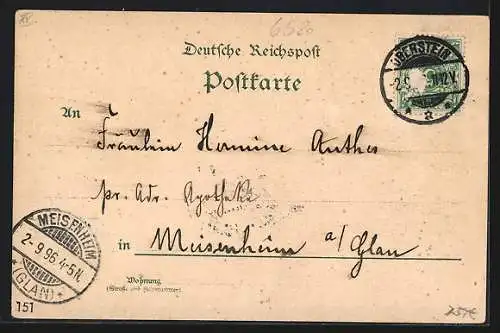 6680
Deutsche Reichspost
Postkarte
OBERSTEIN
2.9. 11-12V.
* a *
An
Fräulein Hermine Anthes
pr. Adr. Apotheke
in Meisenheim a/Glan
MEISENHEIM
2-9 96 4-5N.
*(GLAN)*
Wohnung
(Straße und Hausnummer)
151